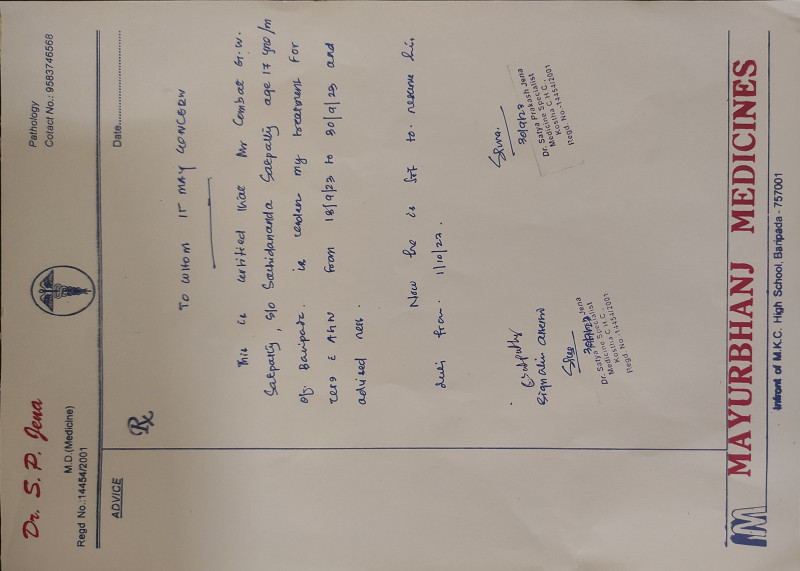 Dr. S. P. Jena
M.D.(Medicine)
Regd No.:14454/2001
Pathology
Cotact No.: 9583746568
ADVICE
Rx
Date
TO WHOM IT MAY CONCERN
This is certified that Mr Combat G.W.
Satpathy, S/o Sachidananda Satpathy age 17 yrs/m
of Baripada. is under my treatment for
from 18/9/23 to 30/9/23 and
advised rest.
Now he is fit to resume his
from. 1/10/23.
Satpathy
Signature attested
30/9/23
Dr. Satya Prakash Jena
Medicine Specialist
Medicine C H C.
Kostha C.H.C.
Regd. No.-14454/2001
30/9/23
Dr. Satya Prakash Jena
Medicine Specialist
Medicine C H C.
Kostha C H C.
Regd. No.-14454/2001
MAYURBHANJ MEDICINES
Infront of M.K.C. High School, Baripada - 757001